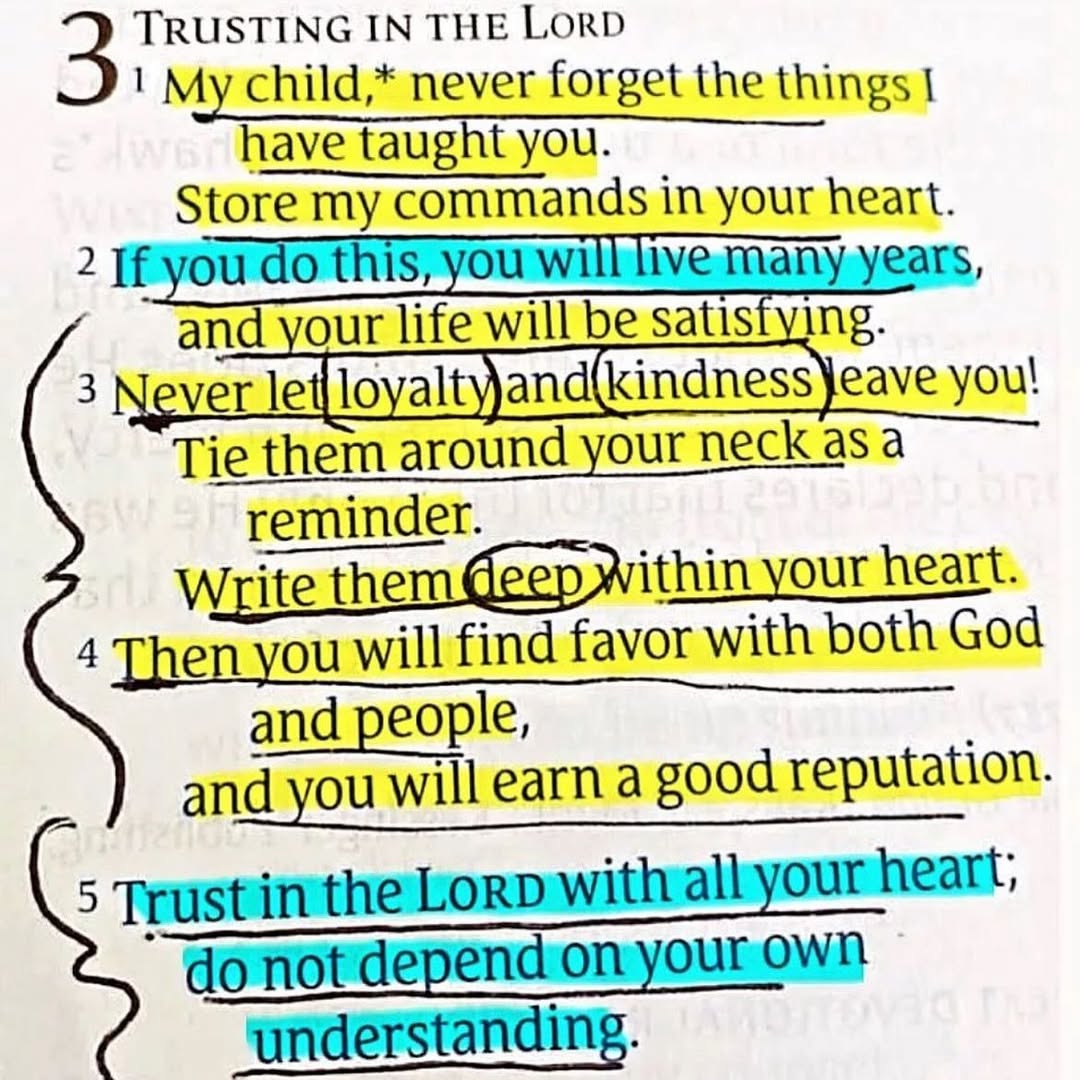 3 TRUSTING IN THE LORD
1 My child,* never forget the things I
have taught you.
Store my commands in your heart.
2 If you do this, you will live many years,
and your life will be satisfying.
3 Never let loyalty and kindness leave you!
Tie them around your neck as a
reminder.
Write them deep within your heart.
4 Then you will find favor with both God
and people,
and you will earn a good reputation.
5 Trust in the LORD with all your heart;
do not depend on your own
understanding.